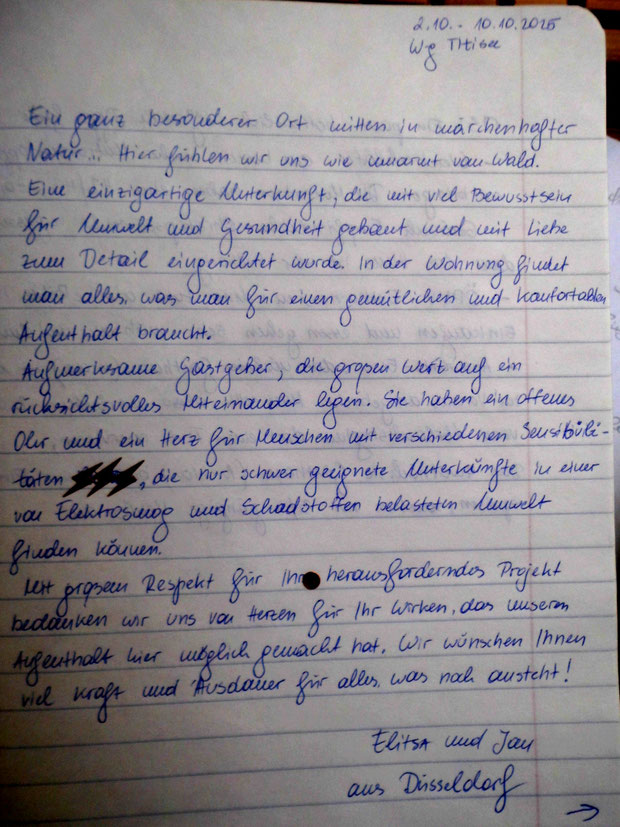 2.10. - 10.10.2025
Wg
Ein ganz besonderer Ort mitten in märchenhafter
Natur... Hier fühlen wir uns wie umarmt von Wald.
Eine einzigartige Unterkunft, die mit viel Bewusstsein
für Umwelt und Gesundheit gebaut und mit Liebe
zum Detail eingerichtet wurde. In der Wohnung findet
man alles, was man für einen gemütlichen und komfortablen
Aufenthalt braucht.
Aufmerksame Gastgeber, die grosen Wert auf ein
rücksichtsvolles Miteinander legen. Sie haben ein offenes
Ohr und ein Herz für Menschen mit verschiedenen Sensibili-
täten, die nur schwer geeignete Unterkünfte in einer
von Elektrosmog und Schadstoffen belasteten Umwelt
finden können.
Mit grosem Respekt für Ihr herausforderndes Projekt
bedanken wir uns von Herzen für Ihr Wirken, das unseren
Aufenthalt hier möglich gemacht hat. Wir wünschen Ihnen
viel Kraft und Ausdauer für alles, was noch ansteht!
Elitsa und Jan
aus Düsseldorf
→